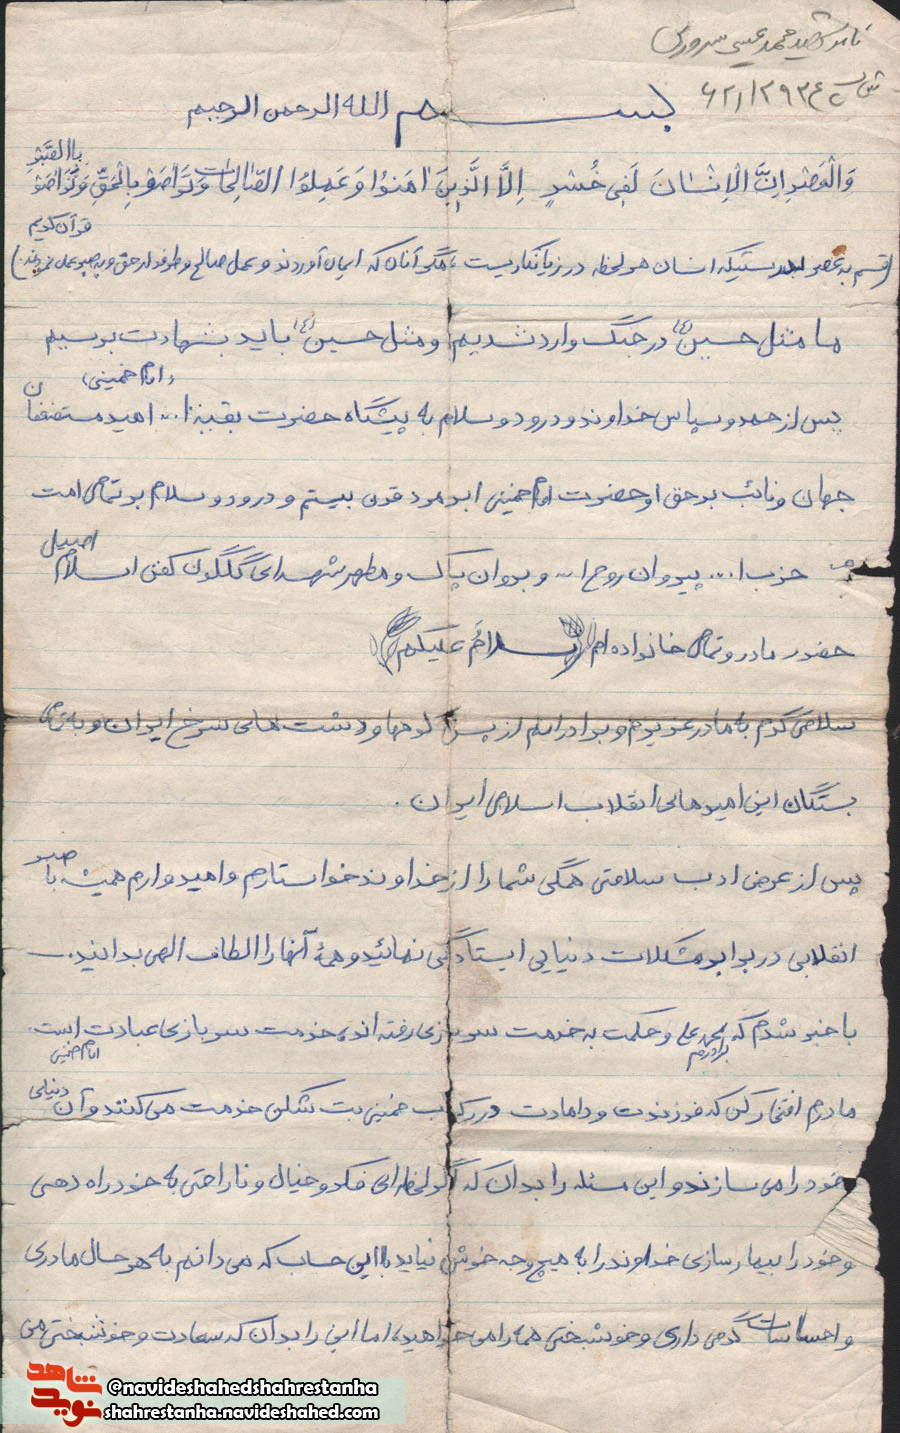 نامه شهید محمد عیسی سروری
بسم الله الرحمن الرحیم
وَالْعَصْرِ اِنَّ الْاِنْسَانَ لَفِی خُسْرٍ اِلَّا الَّذِینَ اٰمَنُوا وَ عَمِلُوا الصّالِحاتِ وَتَوَاصَوْ بِالْحَقِّ وَتَوَاصَوْ بِاالصَّبْرِ
قرآن کریم
(قسم به عصر بدرستیکه انسان هر لحظه در زیانکاریست، مگر آنان که ایمان آوردند و عمل صالح و طرفدار حق و به صبر عمل نمودند.)
ما مثل حسین (ع) در جنگ وارد شدیم و مثل حسین (ع) باید بشهادت برسیم
«امام خمینی»
پس از حمد و سپاس خداوند و درود و سلام به پیشگاه حضرت بقیة ا... امید مستضعفان
جهان و نائب برحق او حضرت امام خمینی ابر مرد قرن بیستم و درود و سلام بر تمامی امت
حزب ا... پیروان روح ا... و بروان پاک و مطهر شهدای گلگون کفن اسلام اصیل
حضور مادر و تمامی خانواده ام سلامٌ علیکم
سلامی گرم به مادر عزیزم و برادرانم از پس کوهها و دشت های سرخ ایران و به تمامی
بستگان این امیدهای انقلاب اسلامی ایران.
پس از عرض ادب سلامتی همگی شما را از خداوند خواستارم و امیدوارم همیشه با صبر
انقلابی در برابر مشکلات دنیایی ایستادگی نمائید و همهٔ آنها را الطاف الهی بدانید.
با خبر شدم که برادرم محمد علی و حکمت به خدمت سربازی رفته اند، خدمت سربازی عبادت است. امام خمینی
مادرم افتخار کن که فرزندت و دامادت در رکاب خمینی بت شکن خدمت می کنند و آن دنیای
خود را می سازند و این مسئله را بدان که اگر لحظه ای فکر و خیال و ناراحتی به خود راه دهی
و خود را بیمار سازی خداوند را به هیچ وجه خوش نیاید با این حساب که می دانم به هر حال مادری
و احساسات گرمی داری و خوشبختی همه را می خواهید، اما این را بدان که سعادت و خوشبختی می
شاهد
نوید
@navideshahedshahrestanha
shahrestanha.navideshahed.com